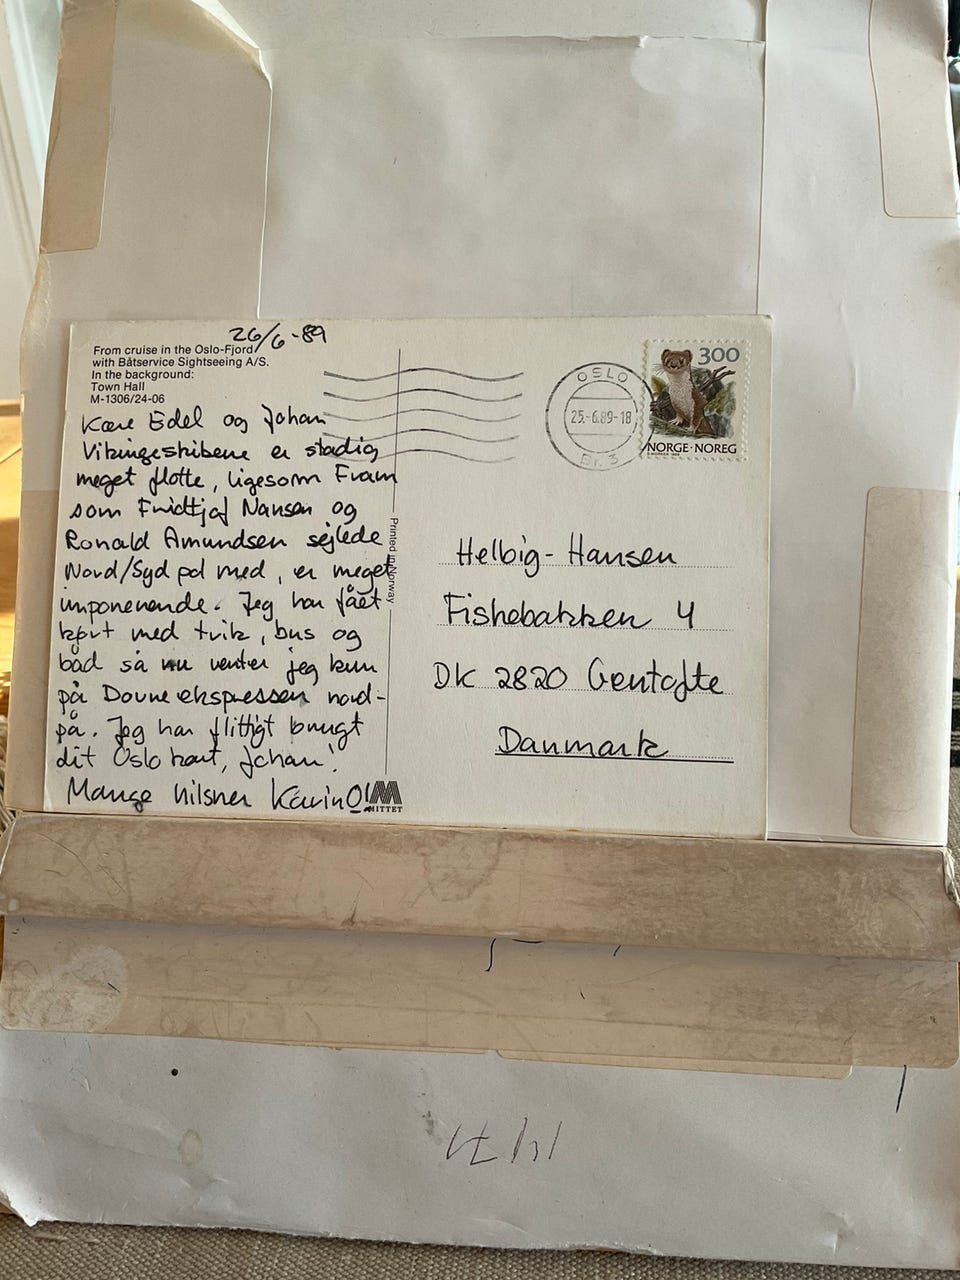 26/6-89
From cruise in the Oslo-Fjord
with Båtservice Sightseeing A/S.
In the background:
Town Hall
M-1306/24-06
Kære Edel og Johan
Vikingeskibene er stadig
meget flotte, ligesom Fram
som Fridtjof Nansen og
Ronald Amundsen sejlede
Nord/Syd pol med, er meget
imponerende. Jeg har fået
kørt med trik, bus og
båd så nu venter jeg kun
på Dovre ekspressen nord-
på. Jeg har flittigt brugt
dit Oslo kort, Johan!
Mange hilsner Karin
MITTET
Printed in Norway
OSLO
25.-6.89-18
Br. 3
300
NORGE·NOREG
Helbig-Hansen
Fiskebakken 4
DK 2820 Gentofte
Danmark